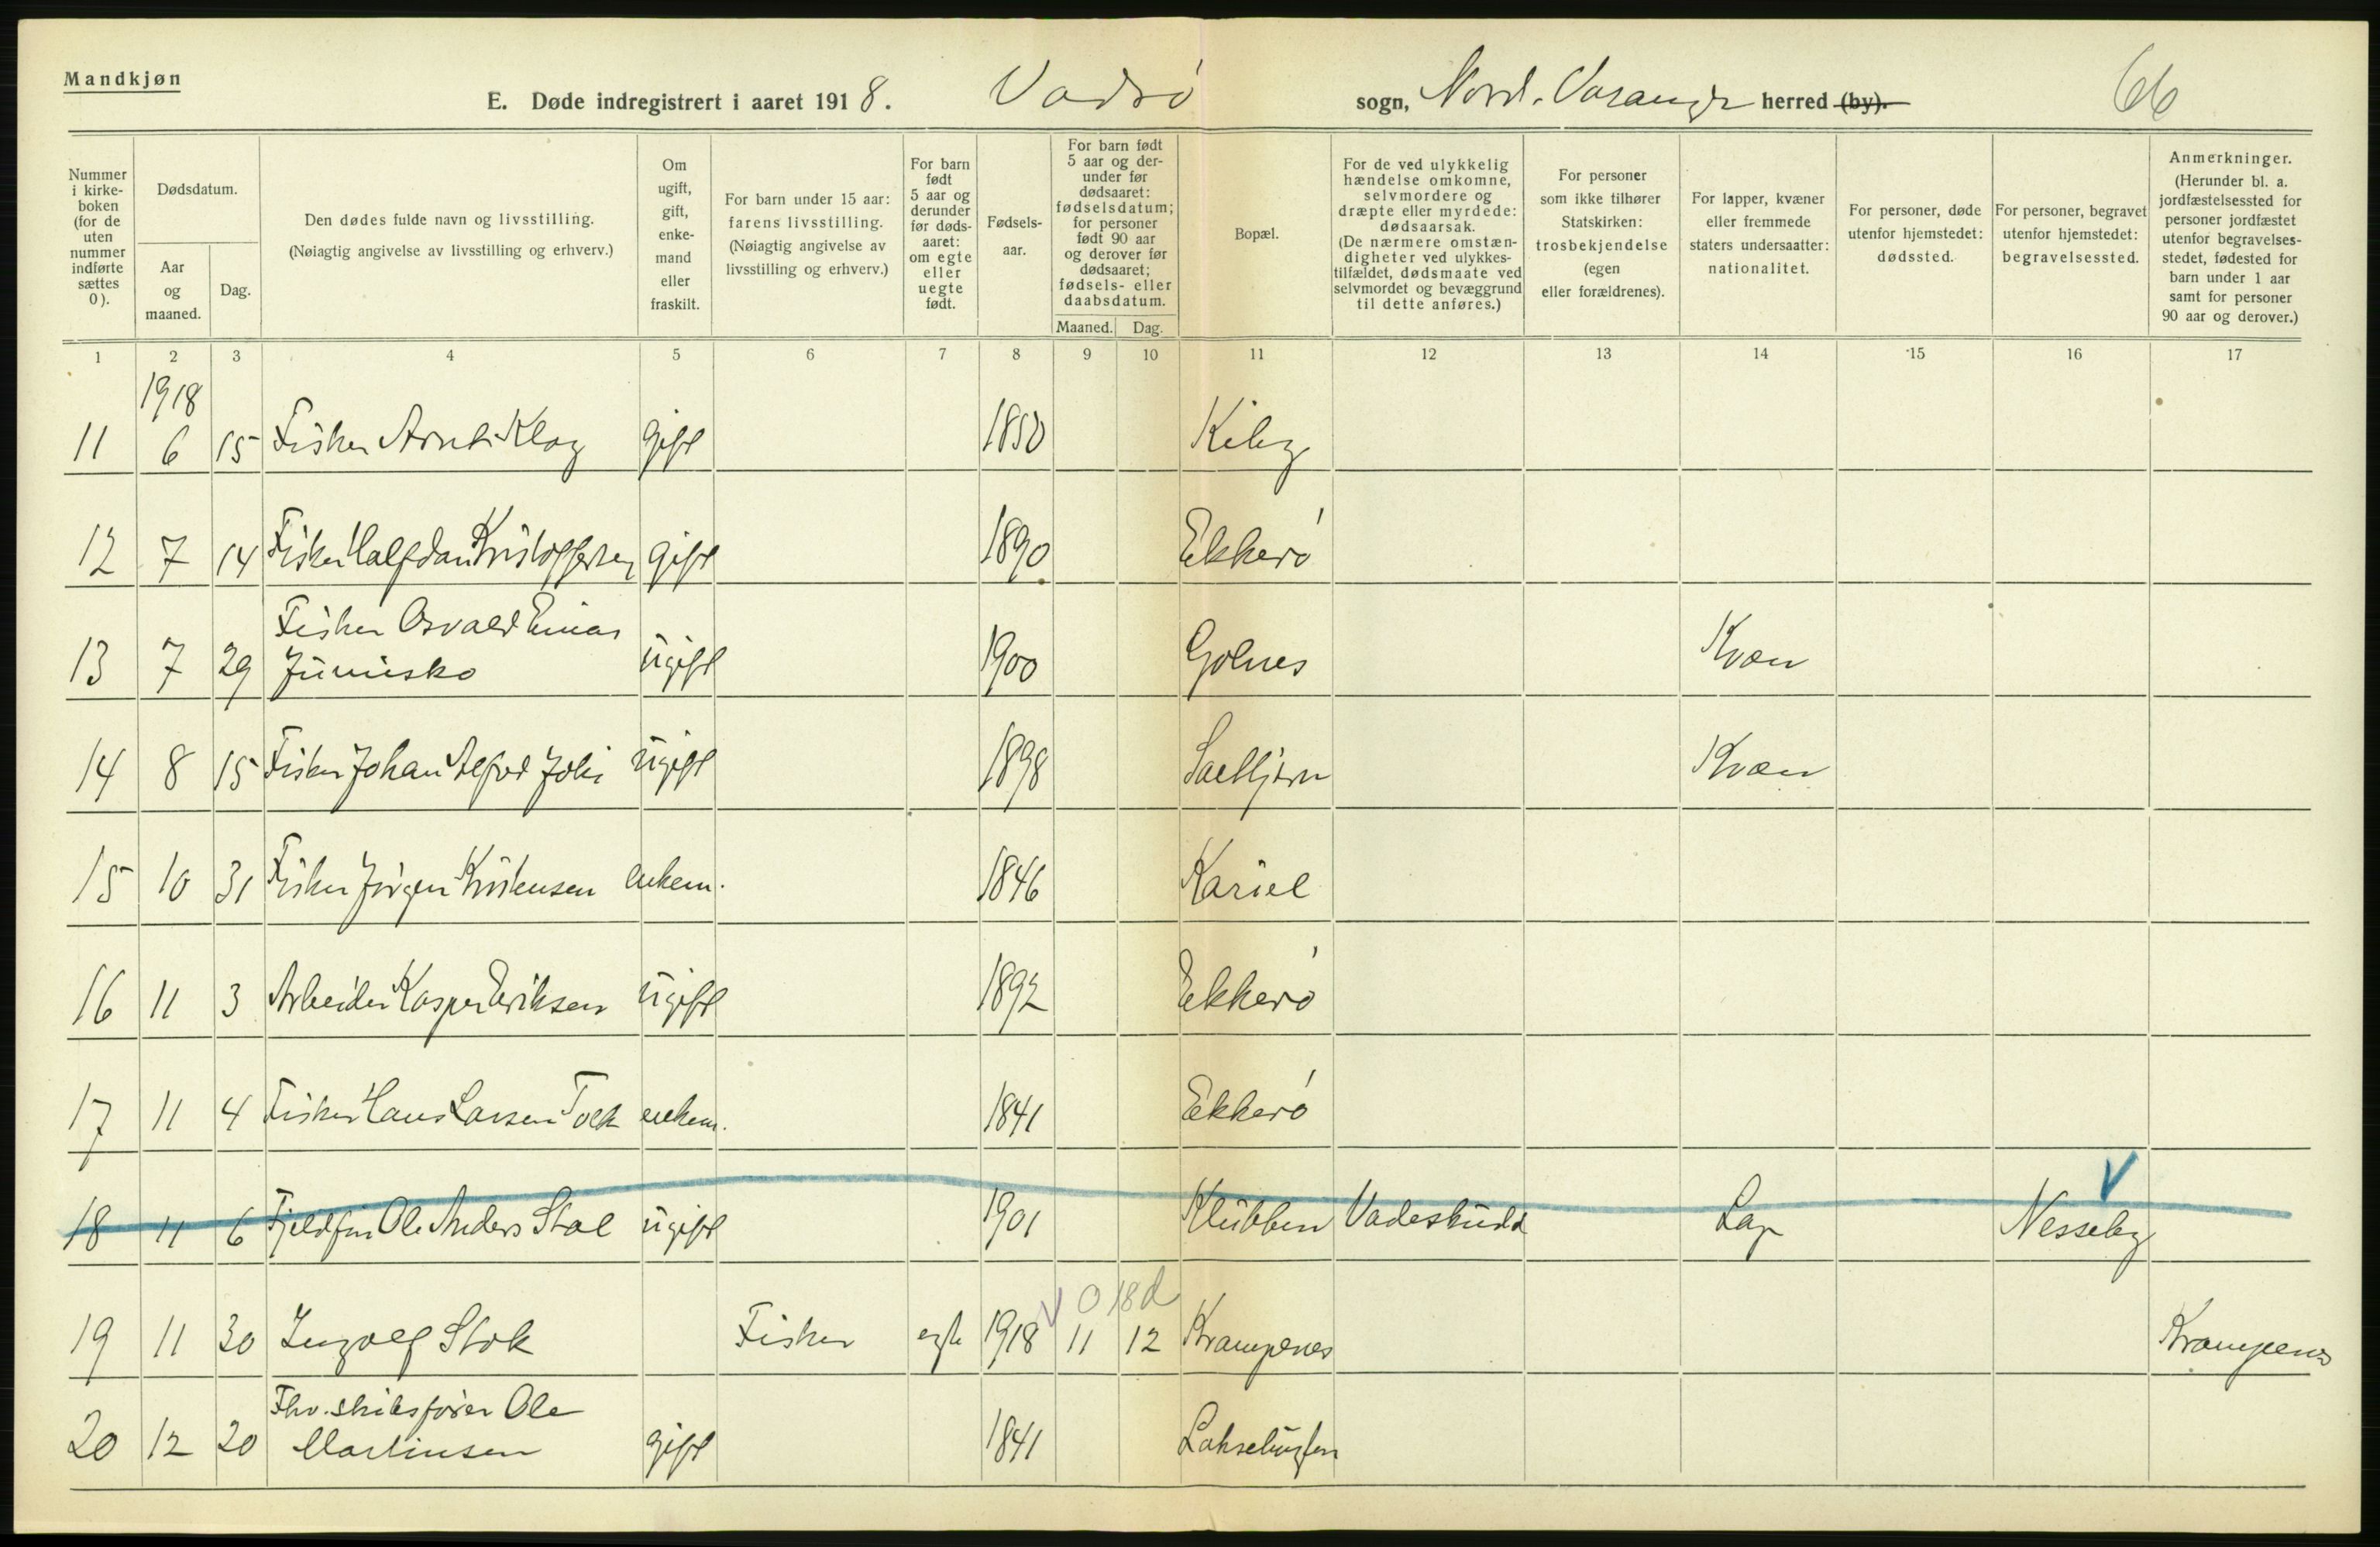 Mandkjøn
E. Døde indregistrert i aaret 1918. Vadsö sogn, Nord-Varanger herred (by). 66
Nummer i kirkeboken (for de uten nummer indførte sættes 0).
Dødsdatum.
Aar og maaned.
Dag.
Den dødes fulde navn og livsstilling.
(Nøiagtig angivelse av livsstilling og erhverv.)
Om ugift, gift, enkemand eller fraskilt.
For barn under 15 aar: farens livsstilling.
(Nøiagtig angivelse av livsstilling og erhverv.)
For barn født 5 aar og derunder før dødsaaret: om egte eller uegte født.
Fødselsaar.
For barn født 5 aar og derunder før dødsaaret: fødselsdatum; for personer født 90 aar og derover før dødsaaret; fødsels- eller daabsdatum.
Maaned. Dag.
Bopæl.
For de ved ulykkelig hændelse omkomne, selvmordere og dræpte eller myrdede: dødsaarsak.
(De nærmere omstændigheter ved ulykkestilfældet, dødsmaate ved selvmordet og bevæggrund til dette anføres.)
For personer som ikke tilhører Statskirken: trosbekjendelse (egen eller forældrenes).
For lapper, kvæner eller fremmede staters undersaatter: nationalitet.
For personer, døde utenfor hjemstedet: dødssted.
For personer, begravet utenfor hjemstedet: begravelsessted.
Anmerkninger.
(Herunder bl. a. jordfæstelsessted for personer jordfæstet utenfor begravelsesstedet, fødested for barn under 1 aar samt for personer 90 aar og derover.)
1 2 3 4 5 6 7 8 9 10 11 12 13 14 15 16 17
1918
11 6 15 Fisker Arnt Klog gift 1850 Kiby
12 7 14 Fisker Halfdan Kristoffersen gift 1890 Ekkerö
13 7 29 Fisker Osvald Einar
Junisko ugift 1900 Golnes Kvæn
14 8 15 Fisker Johan Alfred Joki ugift 1898 Kvæn
15 10 31 Fisker Jörgen Kristensen enkem. 1846 Kariel
16 11 3 Arbeider Kasper Eriksen ugift 1892 Ekkerö
17 11 4 Fisker Hans Larsen enkem. 1841 Ekkerö
18 11 6 Fjeldfin Ole Anders Stal ugift 1901 Klubben Vadeskudd Lap Nesseby
0 18 d
19 11 30 Ingolf Stok Fisker egte 1918 11 12 Krampenes Krampenes
20 12 20 Fhv. skibsförer Ole
Martinsen gift 1841